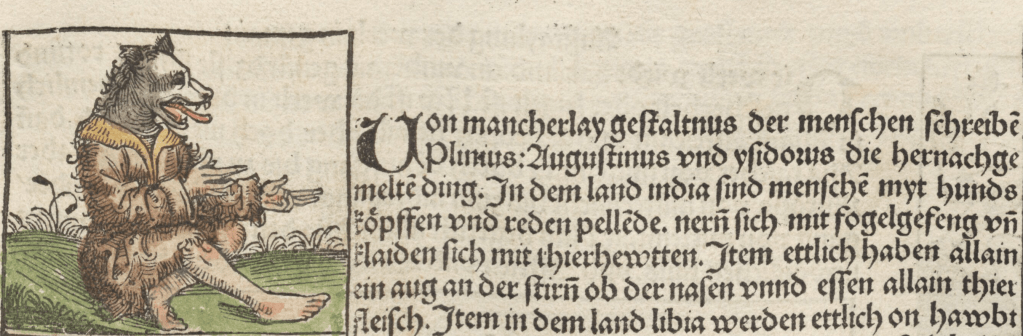 Von mancherlay gestaltnus der menschen schreibē
Plinius: Augustinus vnd ysidorus die hernachge
meltē ding. In dem land india sind menschē myt hunds
köpffen vnd reden pellēde. nern̄ sich mit fogelgefeng vn̄
klaiden sich mit thierhewtten. Item ettlich haben allain
ein aug an der stirn̄ ob der nasen vnnd essen allain thier
fleisch. Item in dem land libia werden ettlich on hawbt